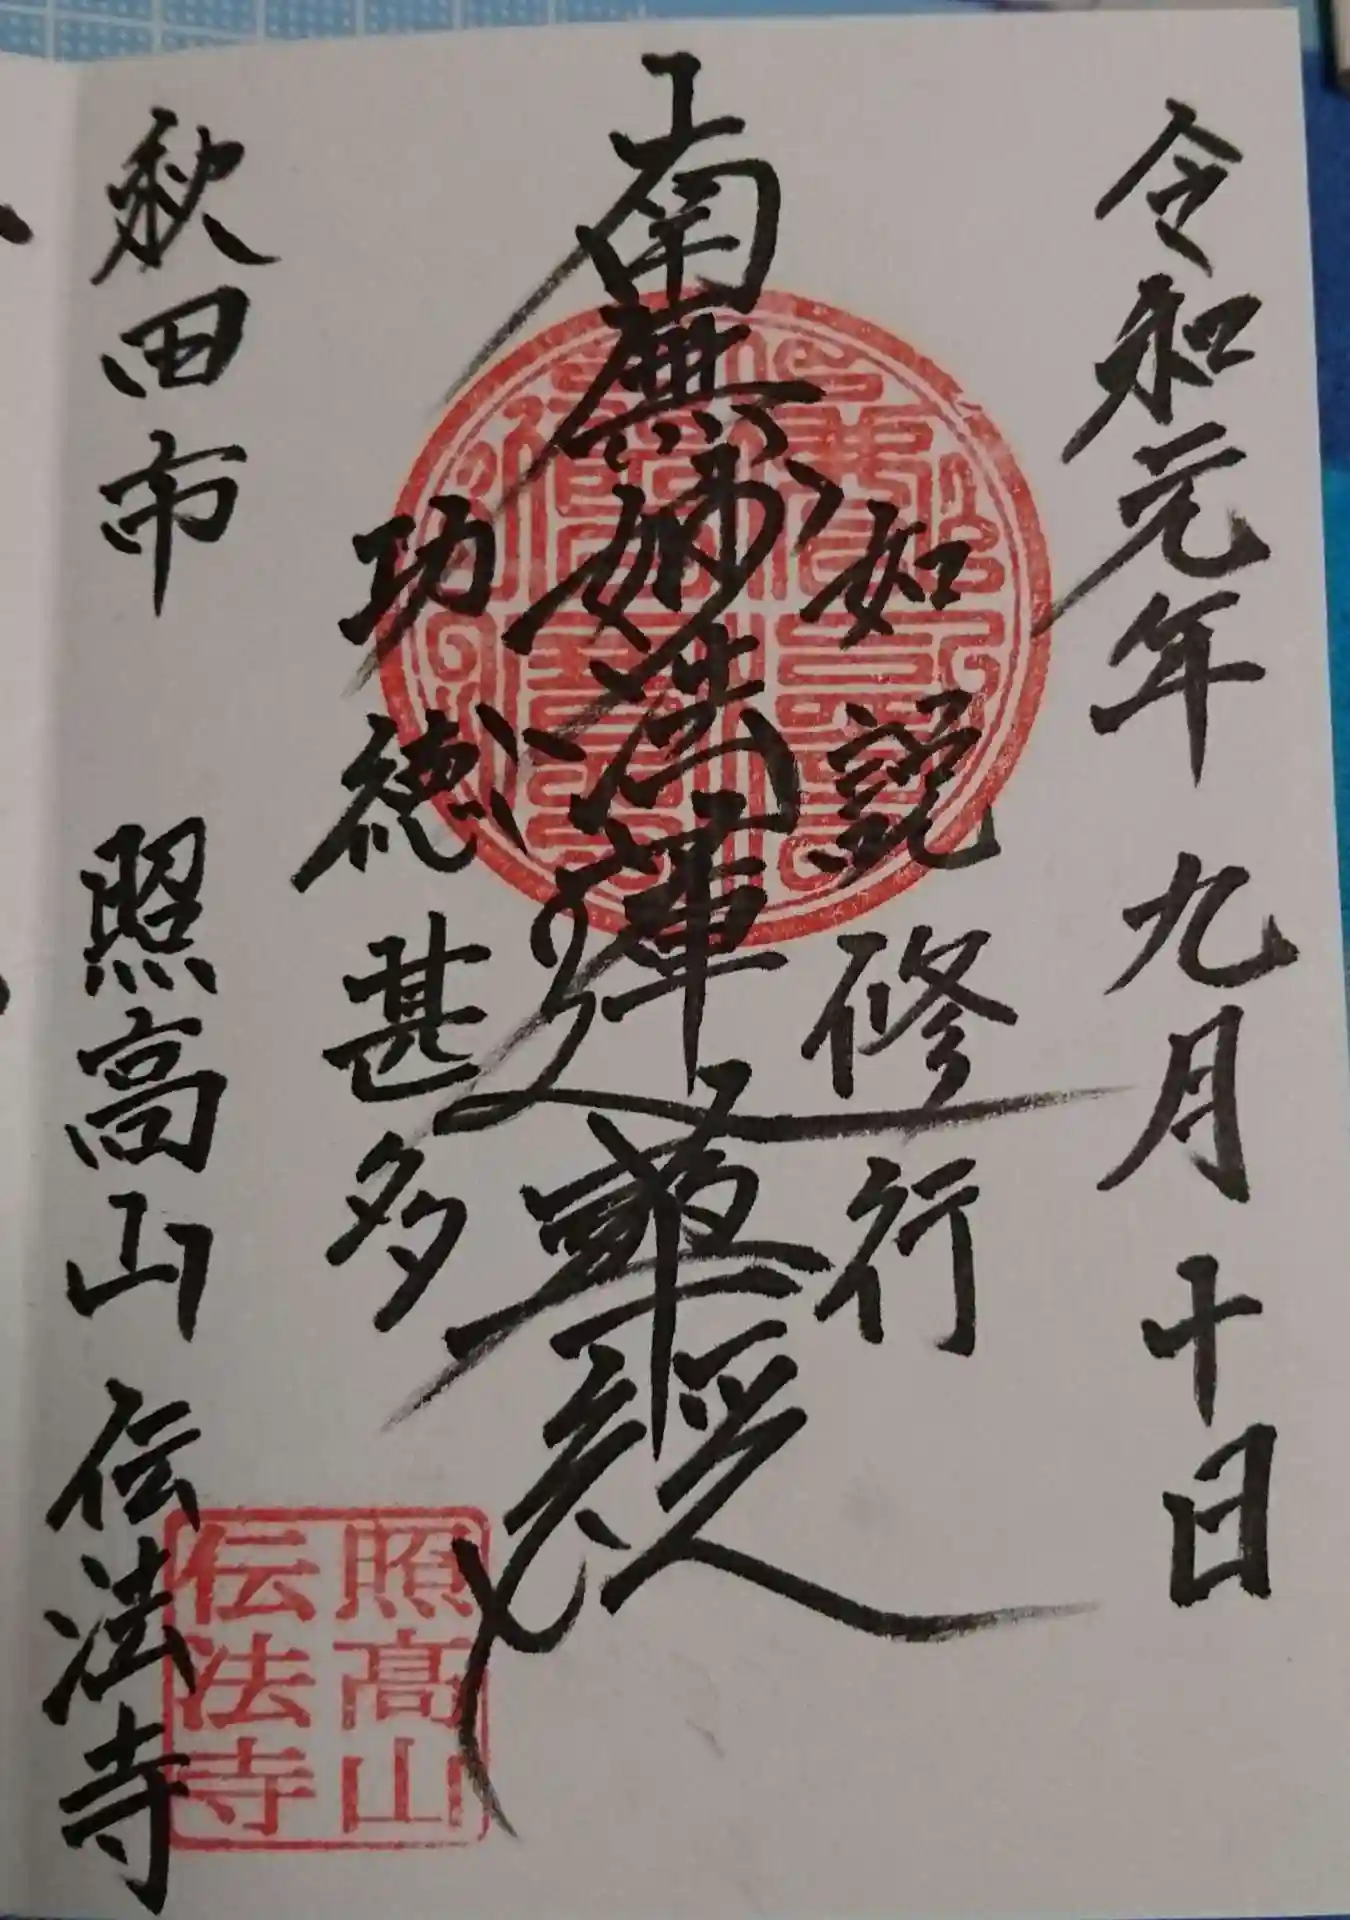 令和元年 九月 十日
如説修行
南無妙法蓮華経
功徳甚多
秋田市 照高山 伝法寺
照高山
伝法寺